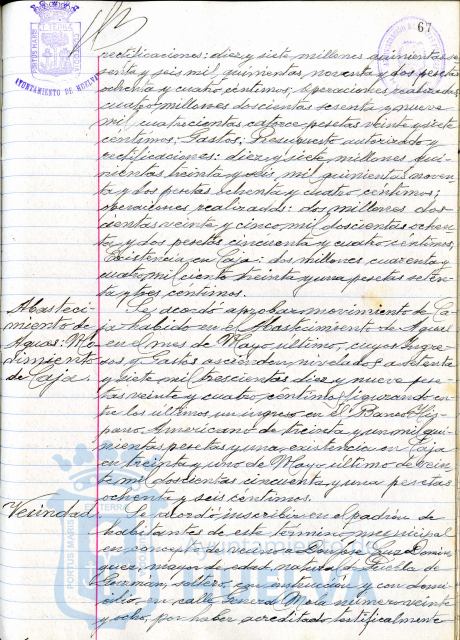 67
AYUNTAMIENTO DE HUELVA
rectificaciones: diez y siete millones quinientas se
senta y seis mil quinientas noventa y dos pesetas
ochenta y cuatro céntimos; operaciones realizadas
cuatro millones doscientas sesenta y nueve
mil cuatrocientas catorce pesetas veinte y siete
céntimos; Gastos: Presupuesto autorizado y
rectificaciones: diez y siete millones qui-
nientas treinta y seis mil quinientas noven-
ta y dos pesetas ochenta y cuatro céntimos;
operaciones realizadas: dos millones dos-
cientas veinte y cinco mil doscientas ochen-
ta y dos pesetas cincuenta y cuatro céntimos,
Existencia en Caja: dos millones cuarenta y
cuatro mil ciento treinta y una pesetas seten-
ta y tres céntimos.
Abasteci-
miento de
Aguas: Mo-
vimiento
de Caja.
Se acordó aprobar movimiento de Ca-
ja habido en el Abastecimiento de Aguas
en el mes de Mayo último, cuyos Ingre-
sos y Gastos ascienden, nivelados a setenta
y siete mil trescientas diez y nueve pese-
tas veinte y cuatro céntimos, figurando en-
tre los últimos un ingreso en el Banco His-
pano Americano de treinta y un mil qui-
nientas pesetas y una existencia en Caja
en treinta y uno de Mayo último de vein-
te mil doscientas cincuenta y una pesetas
ochenta y seis céntimos.
Vecindad
Se acordó inscribir en el padrón de
habitantes de este término municipal
en concepto de vecino a Don José Luis Domin-
guez, mayor de edad, natural de Puebla de
Guzmán, soltero, con instrucción y con domi-
cilio en calle General Mola número veinte
y ocho, por haber acreditado testificalmente
PORTUS MARIS ET TERRAE CUSTODIA
Ayuntamiento de
HUELVA